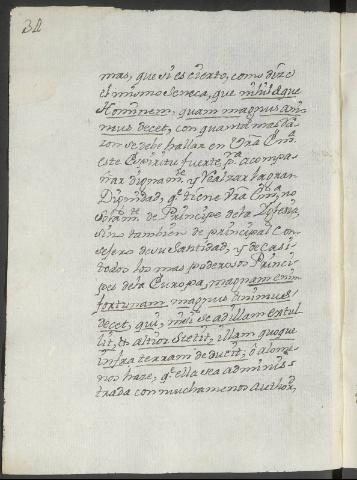 34
mas, que si es cierto, como dize
el mismo Seneca, que nihil æque
Hominem, quam magnus ani-
mus decet, con quanta mas Ra-
zon se debe hallar en Vra Emª.
este Espiritu fuerte, pª. acompa-
ñar dignamte. y Realzar la gran
Dignidad, qe. tiene Vra Emª, no
solamte. de Principe de la Iglesia,
sino tambien de principal Con-
sejero de su Santidad, y de casi
todos los mas poderosos Princi-
pes de la Europa, magnam enim
fortunam, magnus animus
decet, qui, nisi se ad illam extul-
lit, & altior stetit, illam quoque
infra terram deducit, ò alome-
nos haze, qe. ella sea adminis-
trada con mucha menos Authord,